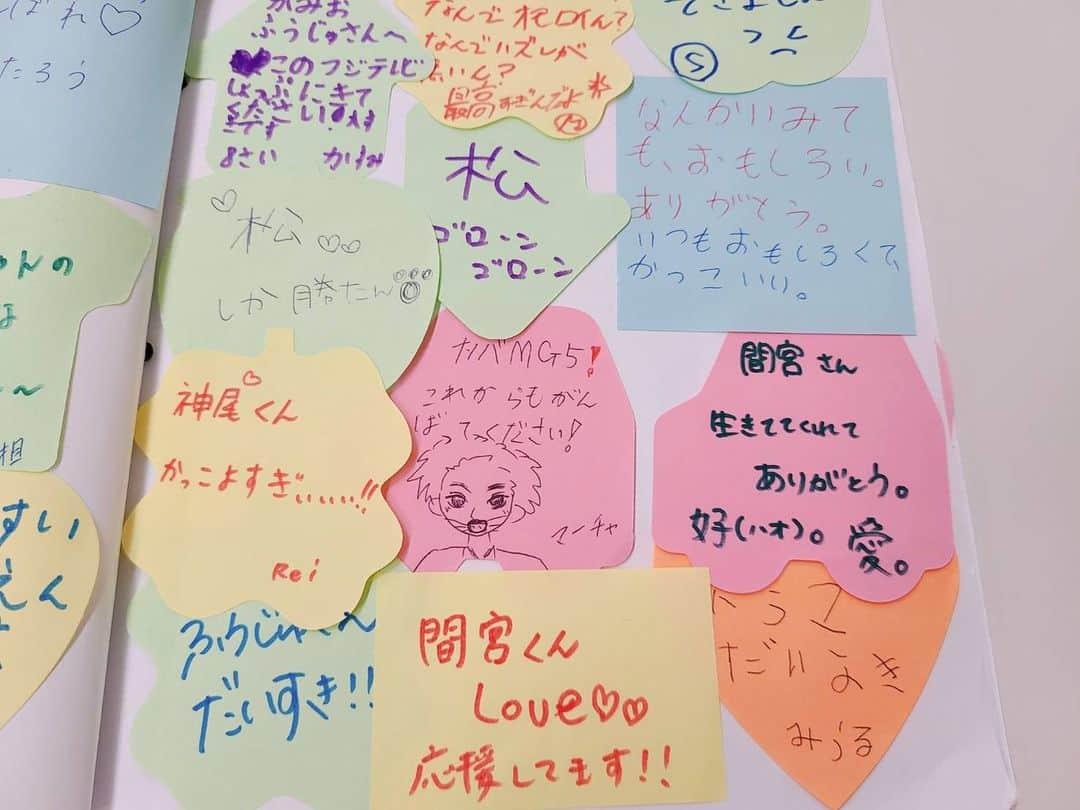 ばれ♡
たろう
かみお
ふうじゅさんへ
💜このフジテレビ
しょっぷにきて
ください!
です
8さい
なんで
なんでいズレが
最高すぎんだよ
S
松
ゴローン
ゴローン
なんかいみて
も、おもしろい。
ありがとう。
いつもおもしろくて、
かっこいい。
♡松♡♡
しか勝たん
ゃんの
相
すい
えん
神尾くん♡
かっこよすぎぃぃぃぃ!!
Rei
MG5!
これからもがん
ばってください!
マーチャ
間宮さん
生きててくれて
ありがとう。
好(ハオ)。愛。
ふうじゅくん
だいすき!!
間宮くん
Love♡♡
応援してます!!
だいよき
みうる